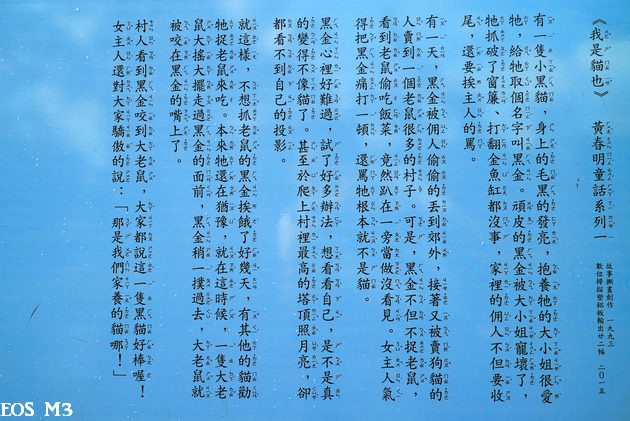 《我是貓也》 黃春明童話系列一
故事撕畫創作 一九九三
數位掃描塑鋁板輸出廿二幅 二○一五
有一隻小黑貓，身上的毛黑的發亮，抱養牠的大小姐很愛
牠，給牠取個名字叫黑金。頑皮的黑金被大小姐寵壞了，
牠抓破了窗簾、打翻金魚缸都沒事，家裡的佣人不但要收
尾，還要挨主人的罵。
有一天，黑金被佣人偷偷的丟到郊外，接著又被賣狗貓的
人賣到一個老鼠很多的村子。可是，黑金不但不捉老鼠，
看到老鼠偷吃飯菜，竟然趴在一旁當做沒看見。女主人氣
得把黑金痛打一頓，還罵牠根本就不是貓。
黑金心裡好難過，試了好多辦法，想看看自己，是不是真
的變得不像貓了。甚至於爬上村裡最高的塔頂照月亮，卻
都看不到自己的投影。
就這樣，不想抓老鼠的黑金挨餓了好幾天，有其他的貓勸
牠捉老鼠來吃。本來牠還在猶豫，就在這時候，一隻大老
鼠大搖大擺走過黑金的面前，黑金稍一撲過去，大老鼠就
被咬在黑金的嘴上了。
村人看到黑金咬到大老鼠，大家都說這一隻黑貓好棒喔！
女主人還對大家驕傲的說：「那是我們家養的貓哪！」
EOS M3